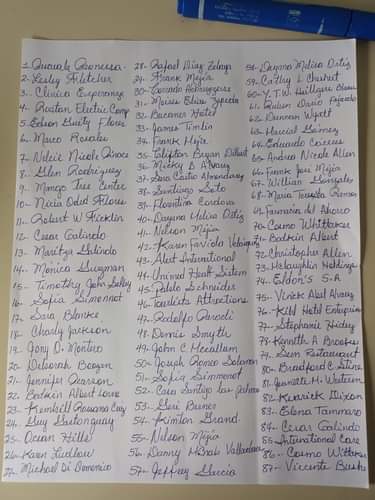 2- Lesley Fletcher
3- Clinica Esperanza
4- Roatan Electric Comp
5- Edson Guity Flores
6- Marco Rosales
7- Nelcie Nicole
8- Glen Rodriguez
9- Mango Tree Center
10- Nicia Odid Flores
11- Robert W Ficklin
12- Cesar Galindo
13- Maritza Galindo
14- Monica Guzman
15- Timothy John Selby
16- Sofia Simonnet
17- Sara Blanks
18- Charly Jackson
19- Jony D. Montero
20- Deborah Bergen
21- Jennifer Pearson
22- Bodkin Albert Lowe
23- Kimbrill Rossana
24- Guy Gustonguay
25- Ocean Hills
26- Karen Ludlow
27- Michael Di Domenico
28- Rafael Diaz Zelaya
29- Frank Mejia
30- Gerardo
31- Marcos Elias Zepeda
32- Bucanos Hotel
33- James Timlin
34- Frank Mejia
35- Clifton Bryan Dilbert
36- Micky B Alvarez
37- Sara Castro Norendary
38- Santiago Soto
39- Florentina Cordova
40- Dayana Melisa Ortiz
41- Nelson Mejia
42- Karen Farida Velasquez
43- Alert International
44- United Heart Sistem
45- Pablo Schneider
46- Tourists Attractions
47- Rodolfo Paroli
48- Dennis Smyth
49- John C. Mccallum
50- Joseph Romeo Solomon
51- Sofia Simmonet
52- Casa Santiago
53- Geri Bisner
54- Kimton Grand
55- Nelson Mejia
56- Danny McNab Valladares
57- Jeffrey Garcia
58- Dayana Melisa Ortiz
59- Cathy L Cheshut
60- Y.T.W. Holligan
61- Ruben Dario Fajardo
62- Duncan Wyatt
63- Marcial Gomez
64- Eduardo Correa
65- Andrea Nicole Allen
66- Frank Jose Mejia
67- William Gonzales
68- Maria Teresita
69- Farmacia del Ahorro
70- Cosmo Whittaker
71- Bodkin Albert
72- Christopher Allen
73- Mclaughlin Holdings
74- Eldon's S.A
75- Vinick Abel Alvarez
76- Kibb Hotel Enterprise
77- Stephanie Hidey
78- Kenneth A Brookes
79- Sun Restaurant
80- Bradford C Stine
81- Jeanette M. Waterin
82- Warrick Dixon
83- Elena Tammaro
84- Cesar Galindo
85- International Care
86- Cosmo Whittaker
87- Vicente Bush